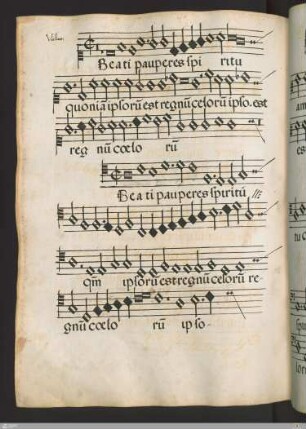 Beati pauperes spi ritu
quoniã ipsorũ est regnũ celorũ ipso. est
reg nũ cœlo rũ
Bea ti pauperes spiritũ
qm̃ ipsorũ est regnũ celorũ re-
gnũ cœlo rũ ipso-